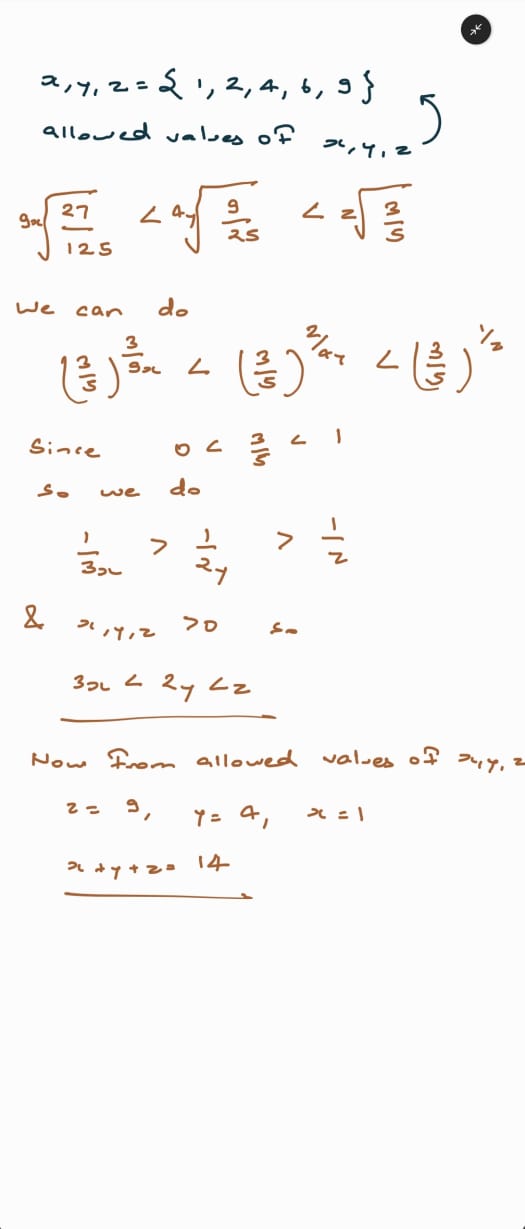 x, y, z = { 1, 2, 4, 6, 9 }
allowed values of x, y, z
9x√(27/125) < 4y√(9/25) < z√(3/5)
We can do
(3/5)^(3/9x) < (3/5)^(2/4y) < (3/5)^(1/z)
Since 0 < 3/5 < 1
so we do
1/3x > 1/2y > 1/z
& x, y, z > 0 so
3x < 2y < z
Now from allowed values of x, y, z
z = 9, y = 4, x = 1
x + y + z = 14